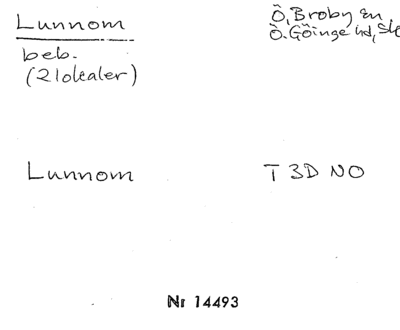 Lunnom
Ö. Broby sn
Ö. Göinge hd, Sk
beb.
(2 lokaler)
Lunnom
T 3D NO
Nr 14493